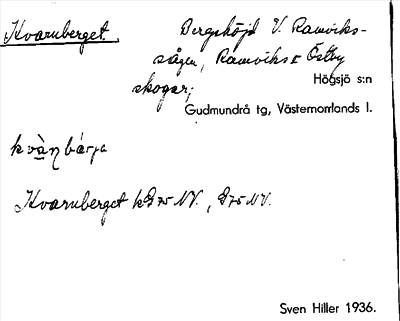 Kvarnberget.
Bergshöjd V. Ramviks-
sågen, Ramviks o Östby
skogar;
Högsjö s:n
Gudmundrå tg, Västernorrlands l.
kvàn bárja
Kvarnberget NV., NV.
Sven Hiller 1936.